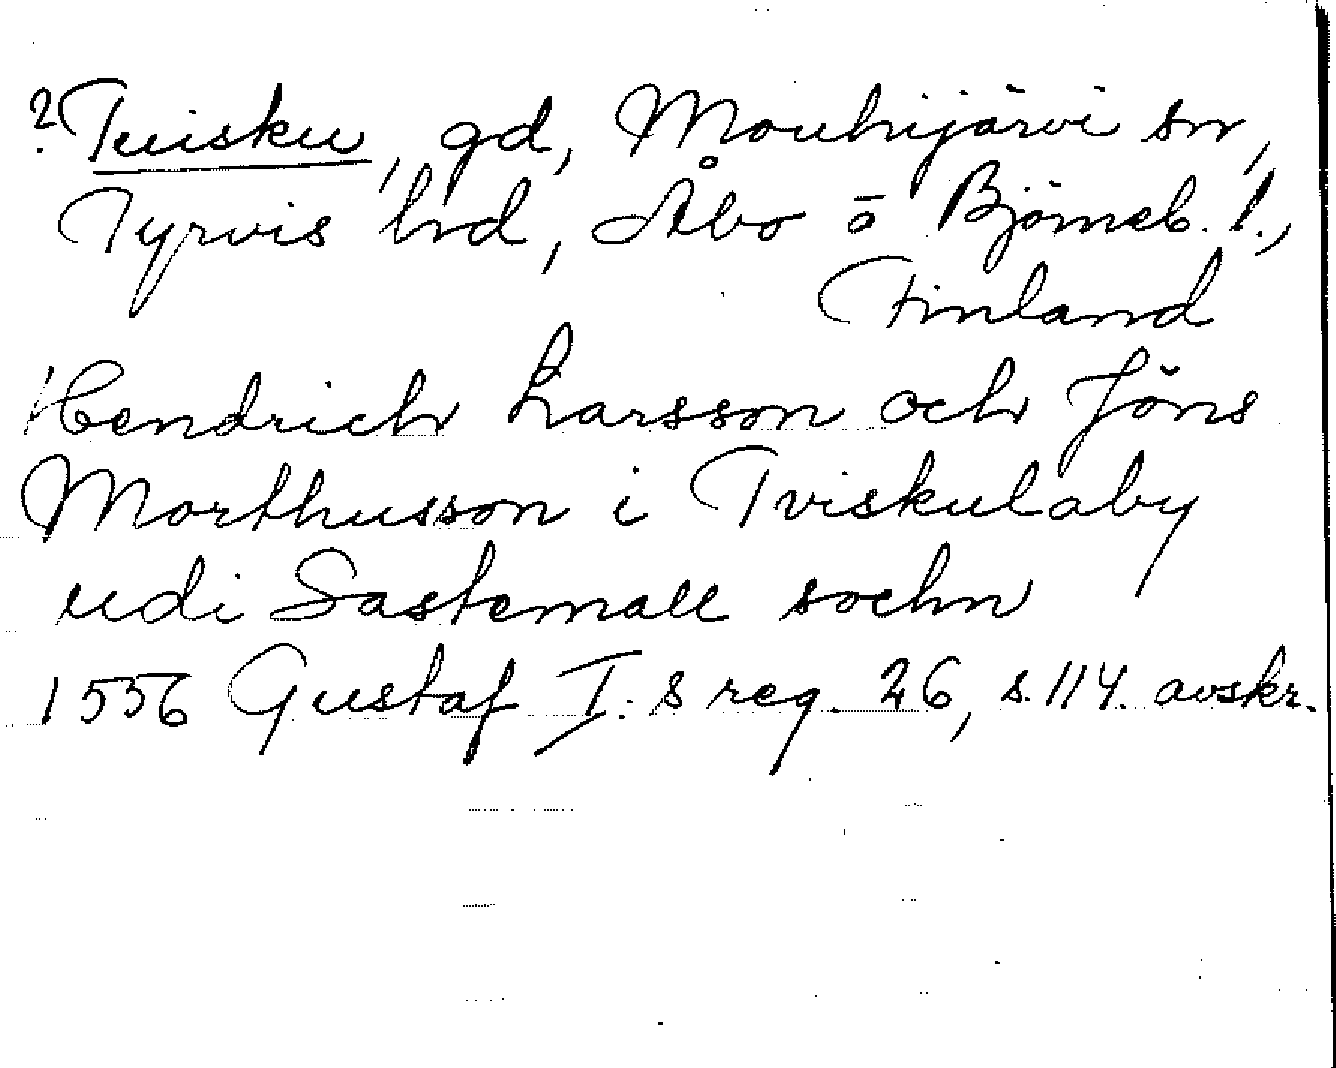 ? Tuisku, gd, Mouhijärvi sn,
Tyrvis hd, Åbo o Björneb. l.,
Finland
Hendrich Larsson och Jöns
Morthusson i Tviskulaby
udi Sastemall sochn
1556 Gustaf I:s reg. 26, s. 114. avskr.